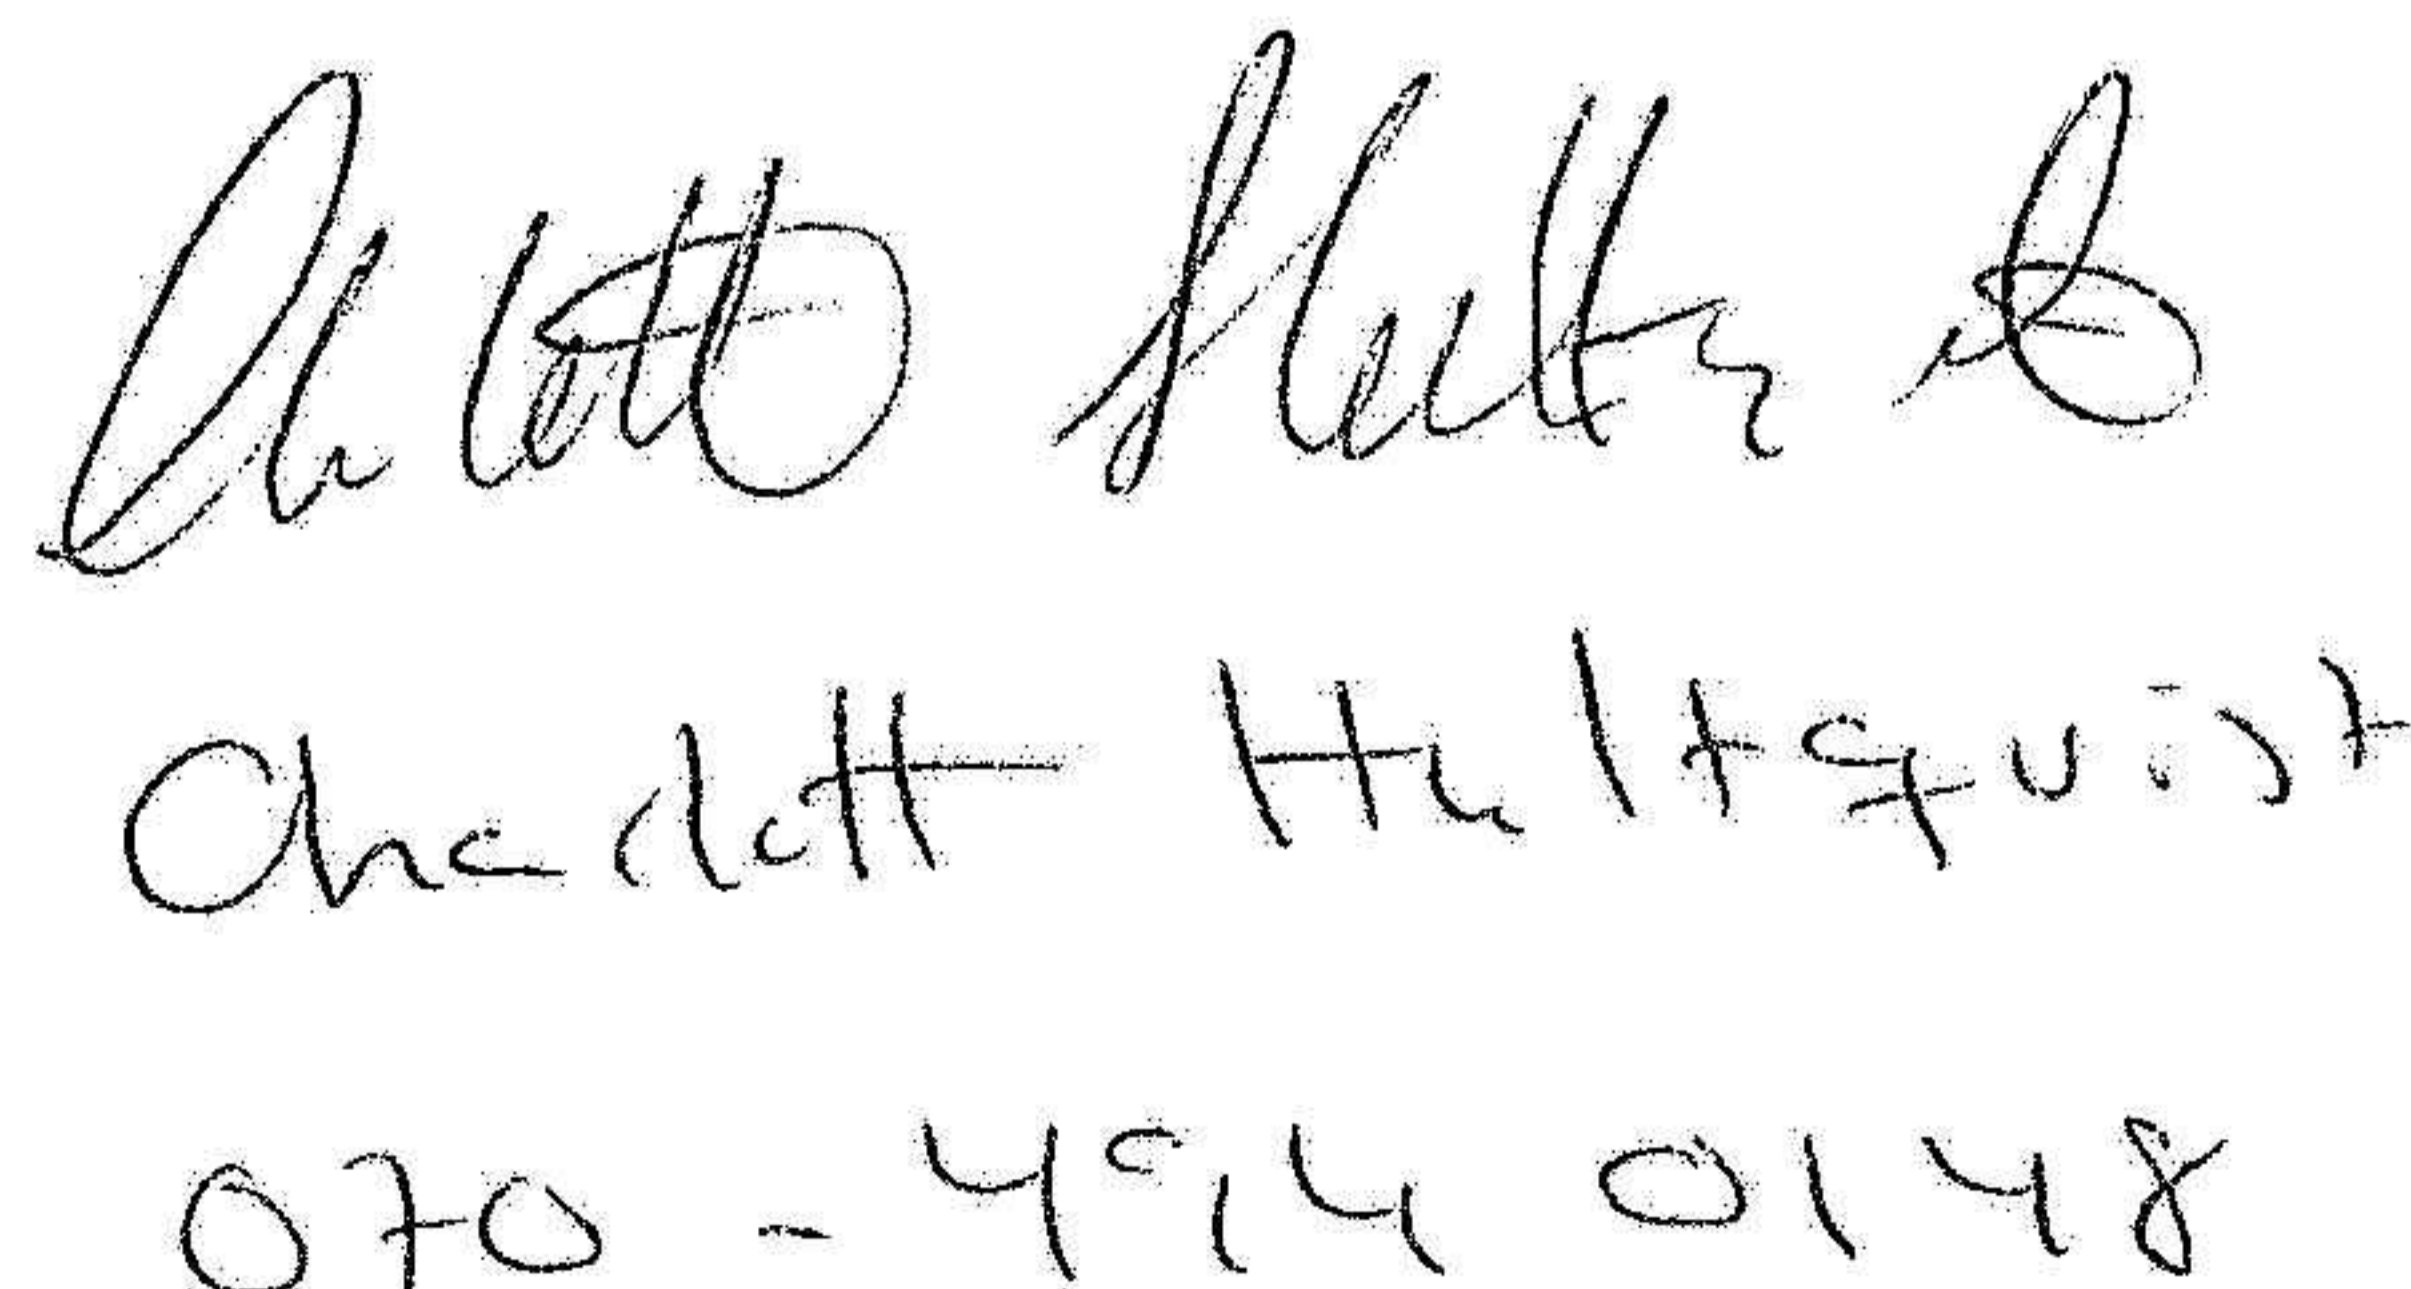 Charlott Hultqvist
Charlott Hultquist
070 - 494 0148